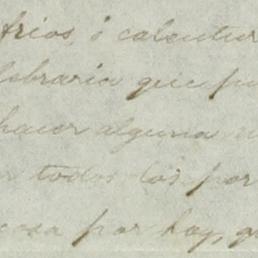 frios, ó calentur
lebraria que pu
hacer alguna
todos los por
cosa por hoy, q